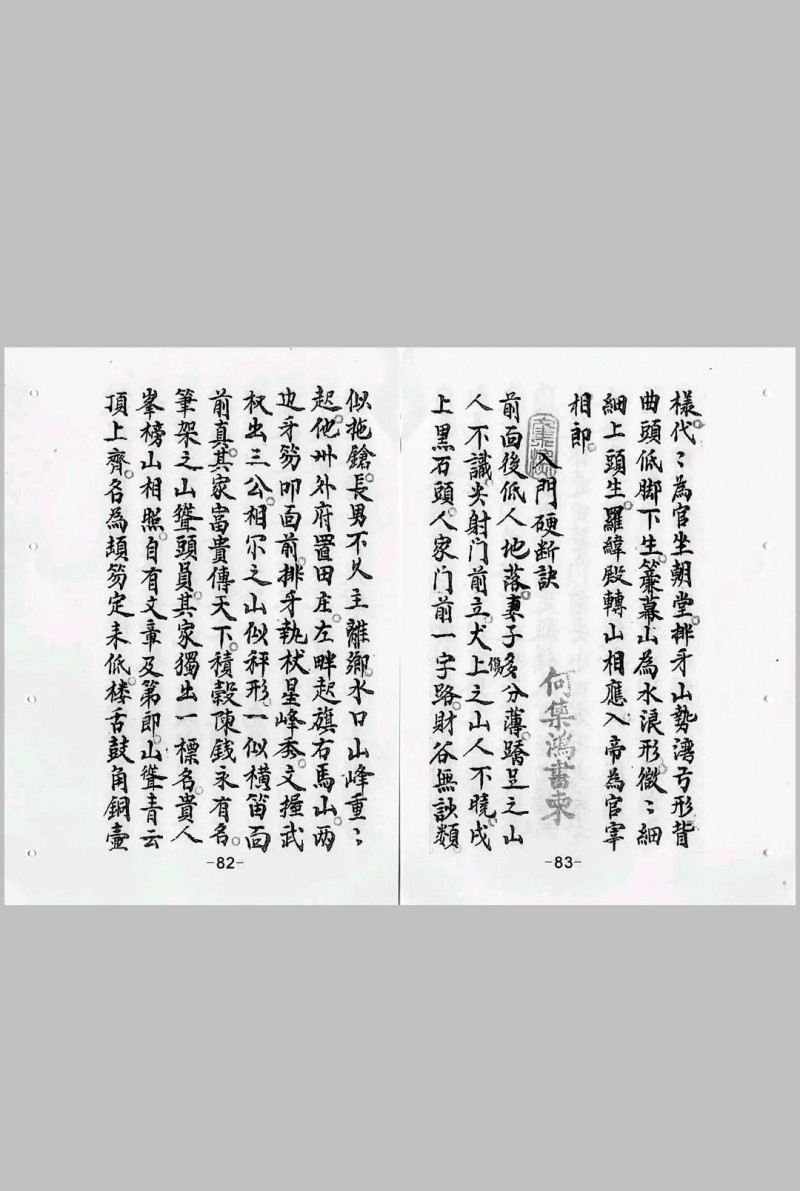 似拖鎗。長男不久主離鄉。水口山峰重〻
起。他州外府置田庄。左畔起旗右馬山。两
边牙笏叩面前。排牙執杖星峰秀。文撞武
权出三公。相尔之山似秤形。一似横笛面
前真。其家富貴傳天下。積穀陳錢永有名。
筆架之山聳頭員。其家獨出一標名。貴人
峯榜山相照。自有文章及第郎。山聳青云
頂上齊。名為頡笏定未低。楼舌鼓角銅壺
-82-
樣。代〻為官坐朝堂。排牙山勢湾弓形。背
曲頭低脚下生。簾幕山為水浪形。微〻細
細上頭生。羅緯殿轉山相應。入帝為官宰
相郎。
入門硬断訣
何集鴻書柬
前面後低人地落。妻子多傷分薄。蹻足之山
人不識。尖射门前立。犬上之山人不曉。戌
上黑石頭。人家门前一字路。財谷無訣類。
-83-